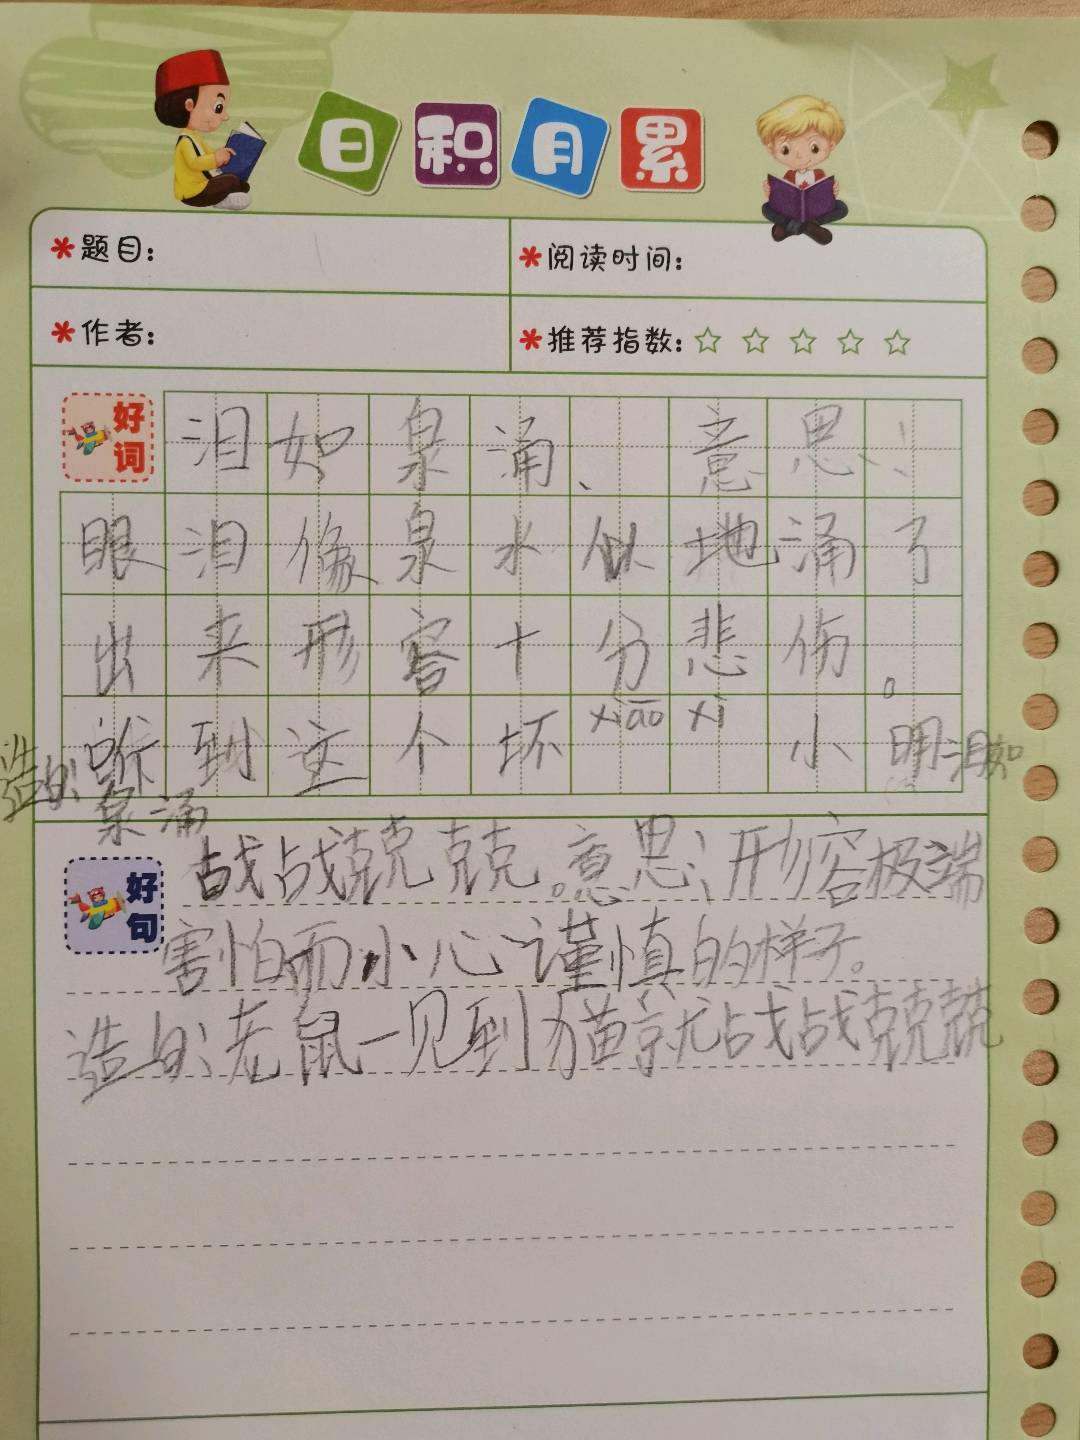 日积月累
题目：
阅读时间：
作者：
推荐指数：☆☆☆☆☆
好词
泪如泉涌、意思：
眼泪像泉水似地涌了
出来形容十分悲伤。
造句：听到这个坏xiāo xi小明泪如
泉涌
好句
战战兢兢。意思：形容极端
害怕而小心谨慎的样子。
造句：老鼠一见到猫就战战兢兢